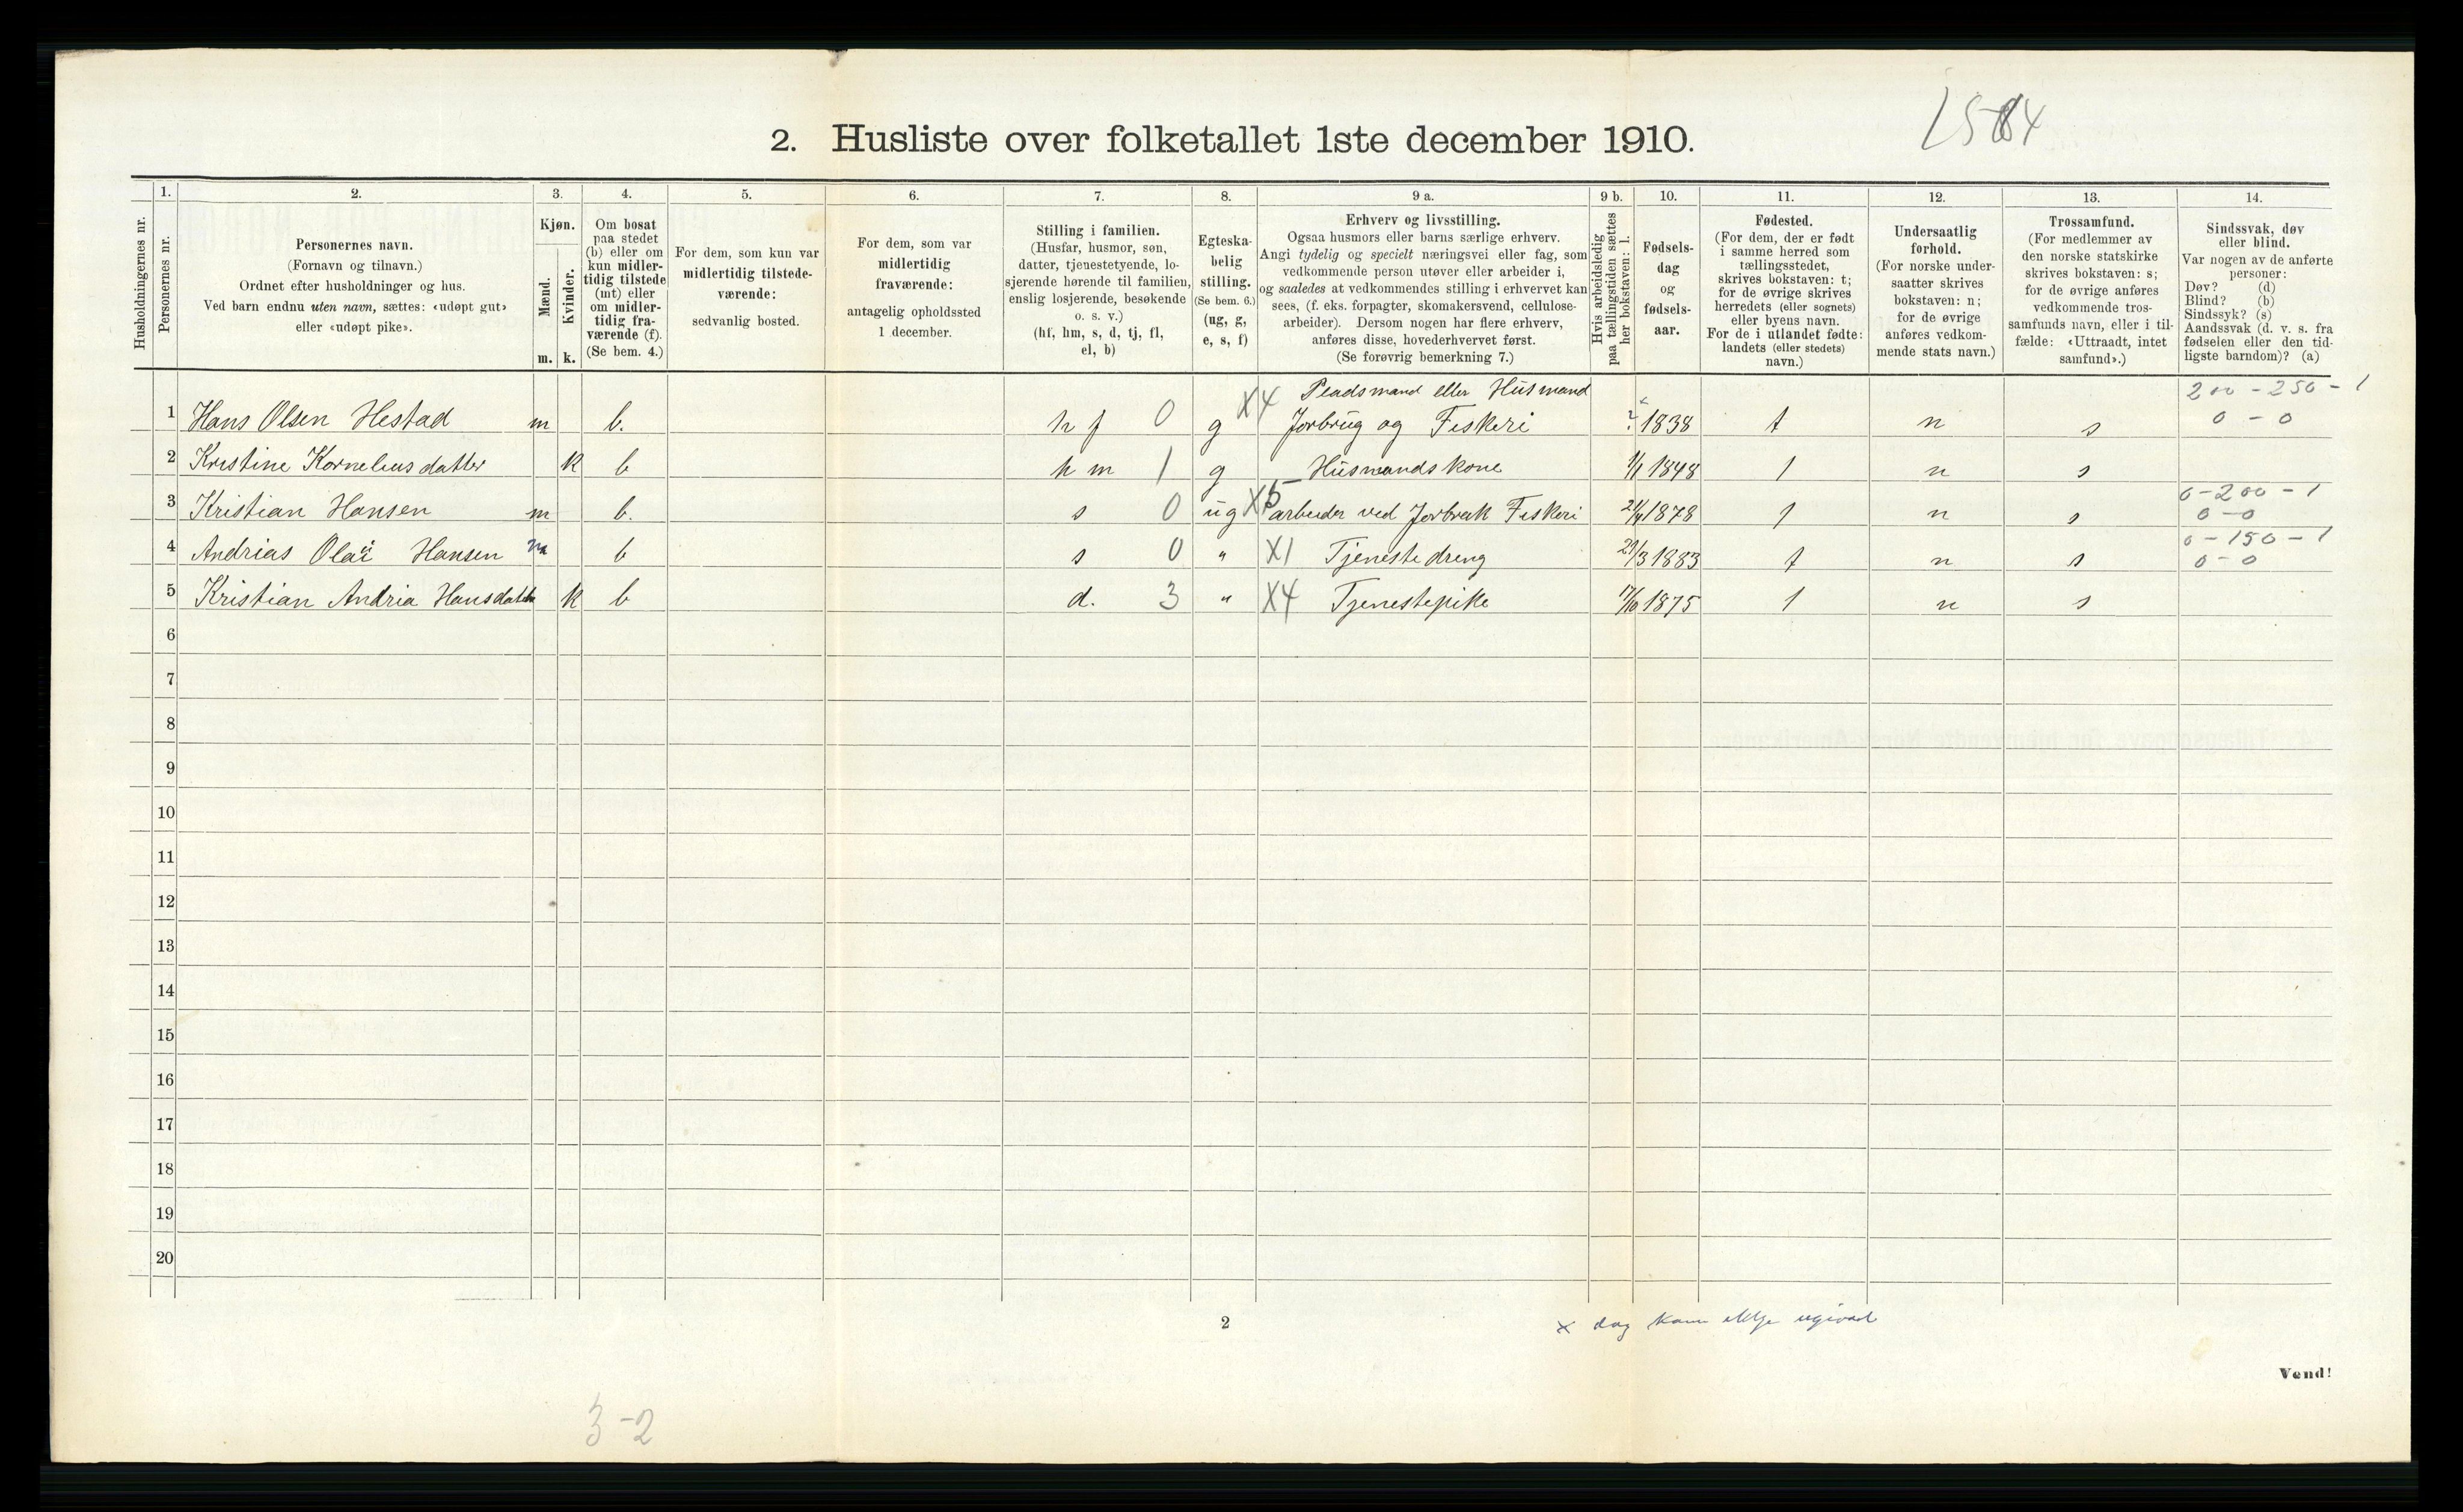 1584
2. Husliste over folketallet 1ste december 1910.
Husholdningernes nr.
1.
Personernes nr.
2.
Personernes navn.
(Fornavn og tilnavn.)
Ordnet efter husholdninger og hus.
Ved barn endnu uten navn, sættes: «udøpt gut»
eller «udøpt pike».
3.
Kjøn.
Mænd.
Kvinder.
m. k.
4.
Om bosat
paa stedet
(b) eller om
kun midler-
tidig tilstede
(mt) eller
om midler-
tidig fra-
værende (f).
(Se bem. 4.)
5.
For dem, som kun var
midlertidig tilstede-
værende:
sedvanlig bosted.
6.
For dem, som var
midlertidig
fraværende:
antagelig opholdssted
1 december.
7.
Stilling i familien.
(Husfar, husmor, søn,
datter, tjenestetyende, lo-
sjerende hørende til familien,
enslig losjerende, besøkende
o. s. v.)
(hf, hm, s, d, tj, fl,
el, b)
8.
Egteska-
belig
stilling.
(Se bem. 6.)
(ug, g,
e, s, f)
9 a.
Erhverv og livsstilling.
Ogsaa husmors eller barns særlige erhverv.
Angi tydelig og specielt næringsvei eller fag, som
vedkommende person utøver eller arbeider i,
og saaledes at vedkommendes stilling i erhvervet kan
sees, (f. eks. forpagter, skomakersvend, cellulose-
arbeider). Dersom nogen har flere erhverv,
anføres disse, hovederhvervet først.
(Se forøvrig bemerkning 7.)
9 b.
Hvis arbeidsledig
paa tællingstiden sættes
her bokstaven: l.
10.
Fødsels-
dag
og
fødsels-
aar.
11.
Fødested.
(For dem, der er født
i samme herred som
tællingsstedet,
skrives bokstaven: t;
for de øvrige skrives
herredets (eller sognets)
eller byens navn.
For de i utlandet fødte:
landets (eller stedets)
navn.)
12.
Undersaatlig
forhold.
(For norske under-
saatter skrives
bokstaven: n;
for de øvrige
anføres vedkom-
mende stats navn.)
13.
Trossamfund.
(For medlemmer av
den norske statskirke
skrives bokstaven: s;
for de øvrige anføres
vedkommende tros-
samfunds navn, eller i til-
fælde: «Uttraadt, intet
samfund».)
14.
Sindssvak, døv
eller blind.
Var nogen av de anførte
personer:
Døv? (d)
Blind? (b)
Sindssyk? (s)
Aandssvak (d. v. s. fra
fødselen eller den tid-
ligste barndom)? (a)
Pladsmand eller Husmand 200 - 250 - 1
1 Hans Olsen Hestad m b. hf 0 g X4 Jorbrug og Fiskeri ? x 1838 t n s 0 - 0
2 Kristine Kornelius datter k b hm 1 g Husmands kone 1/1 1848 t n s
0 - 200 - 1
3 Kristian Hansen m b. s 0 ug X5 arbeider ved Jorbruk Fiskeri 21/4 1878 t n s 0 - 0
0 - 150 - 1
4 Andrias Olai Hansen m b s 0 " X1 Tjenestedreng 21/3 1883 t n s 0 - 0
5 Kristian Andria Hansdatter k b d. 3 " X4 Tjenestepike 17/10 1875 t n s
6
7
8
9
10
11
12
13
14
15
16
17
18
19
20
2
x dag kan ikkje
Vend!
3-2